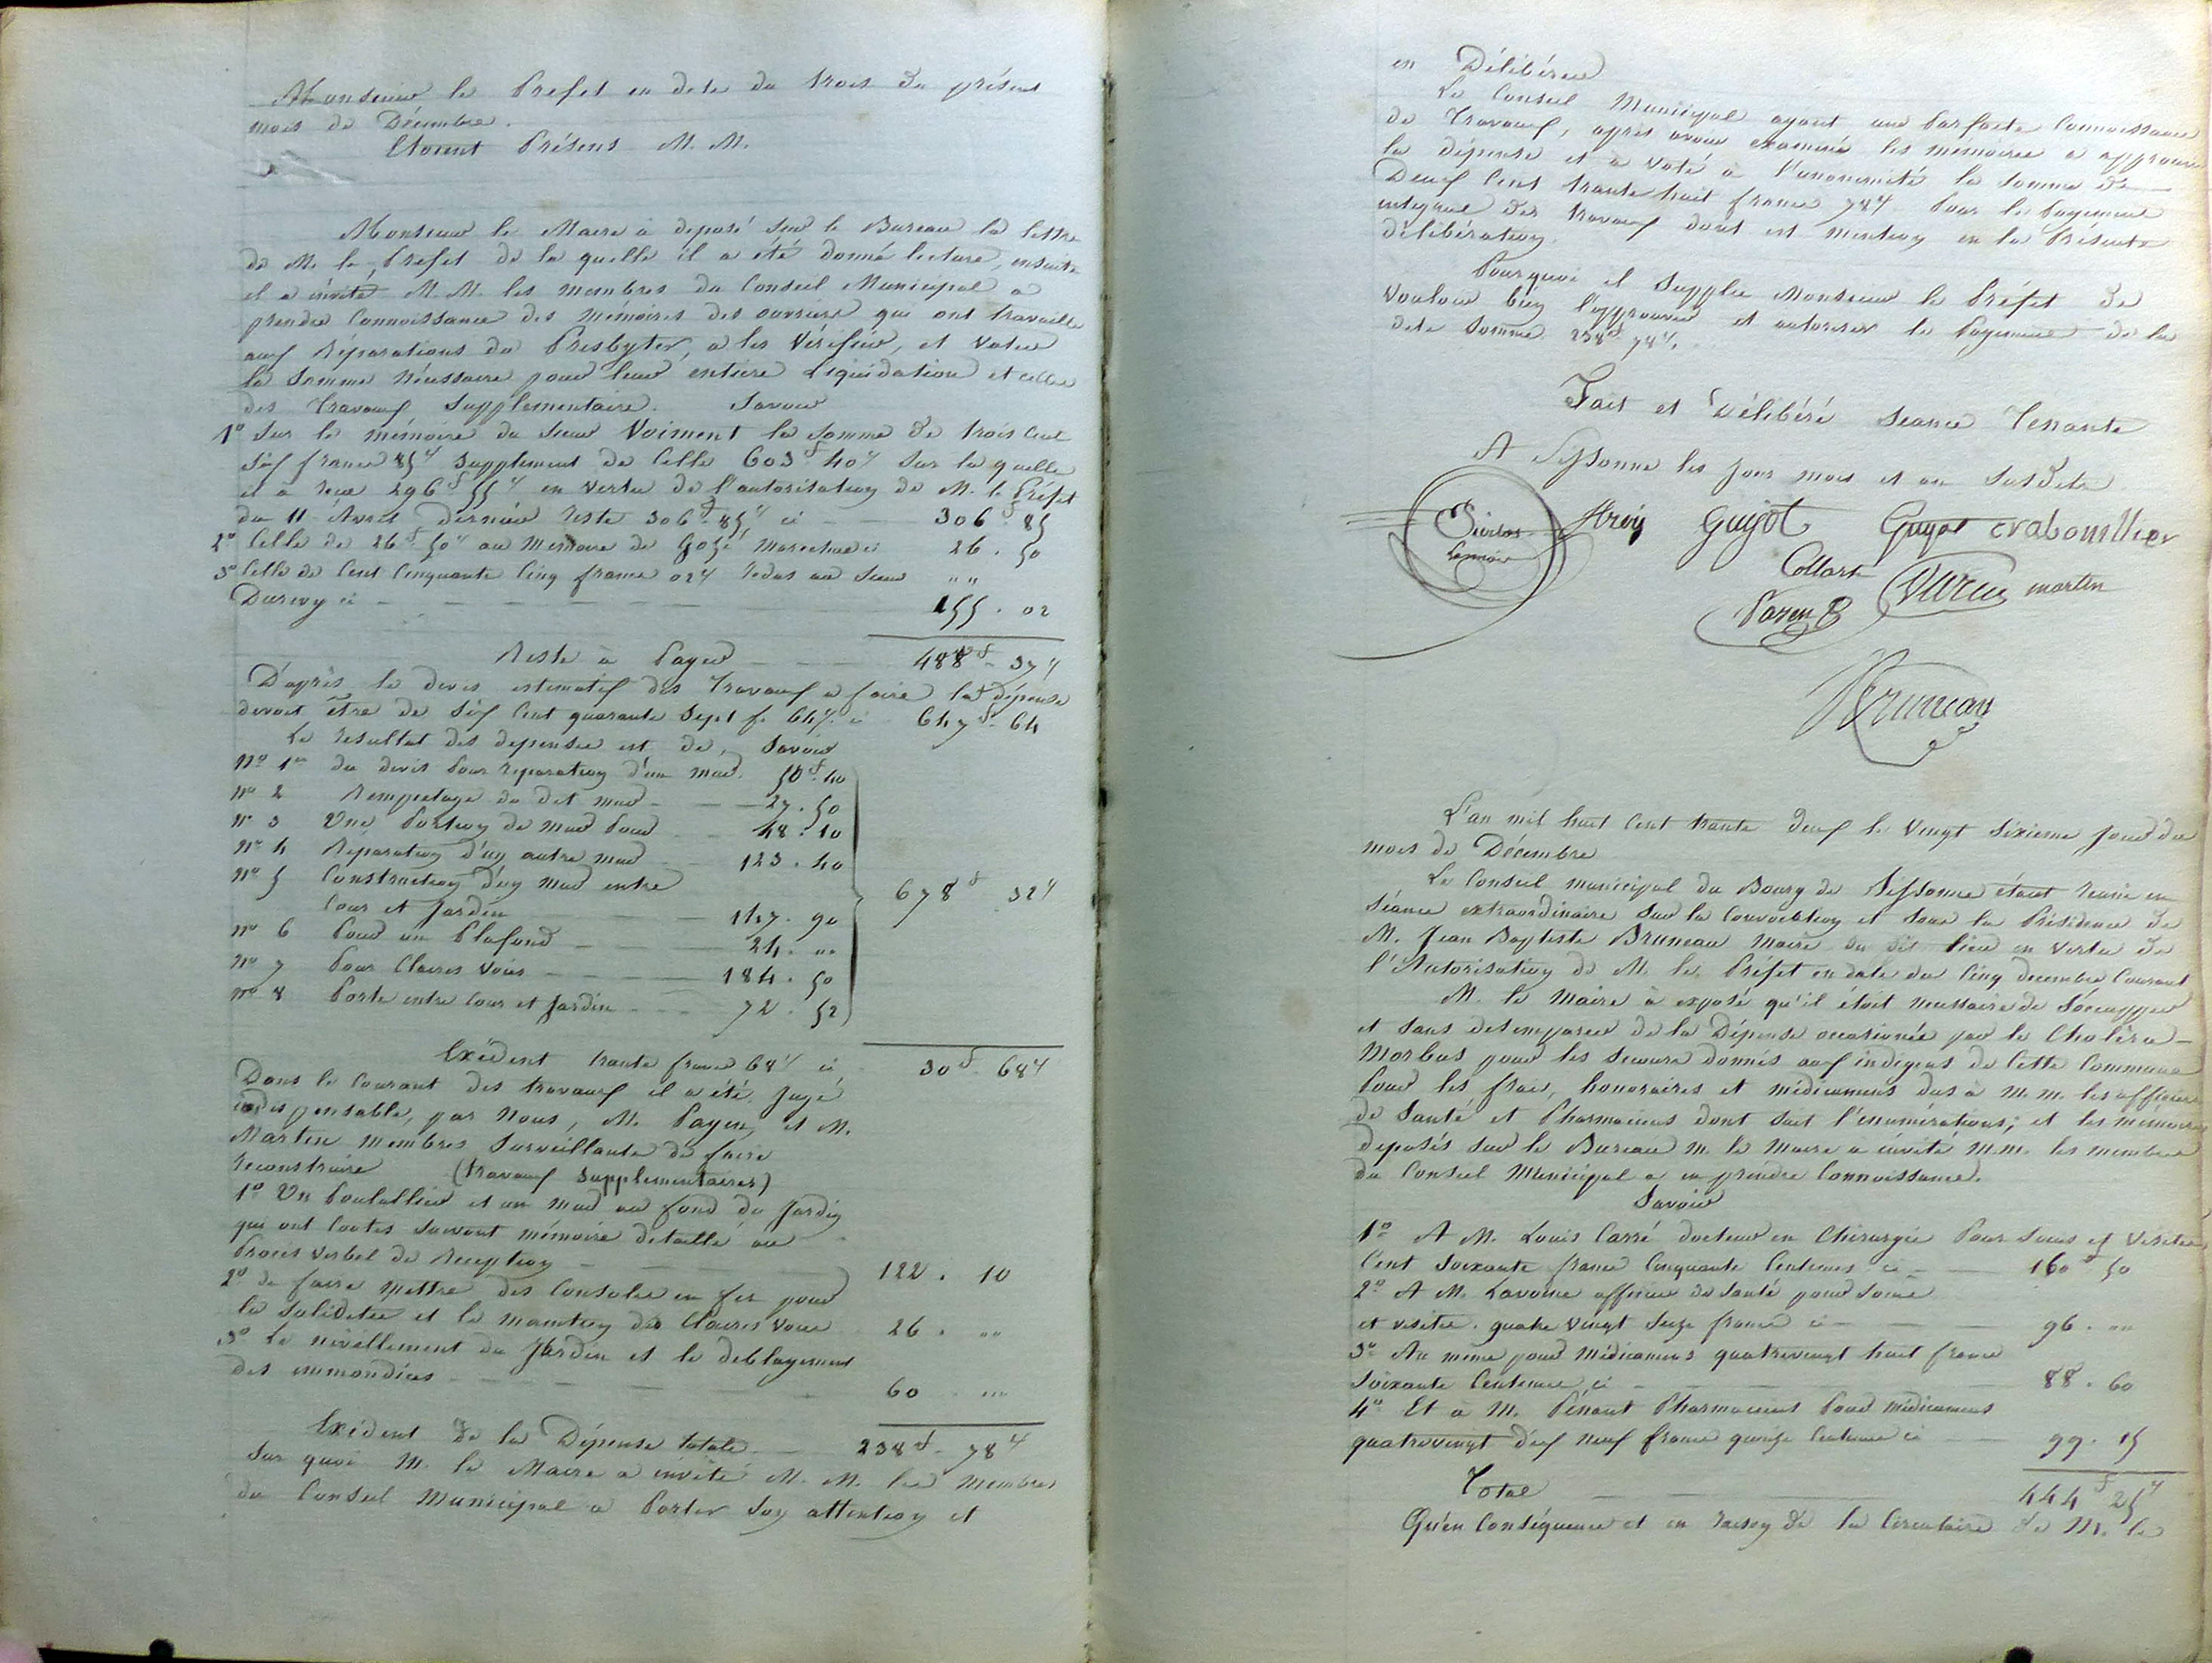 Monsieur le Prefet en date du trois du présent
mois de Décembre.
Etoient Présens M. M.
Monsieur le Maire à déposé sur le Bureau la lettre
de M. le Prefet de la quelle il a été donné lecture, ensuite
il a invité M. M. les membres du Conseil Municipal a
prendre Connoissance des Mémoires des ouvriers qui ont travaillé
aux Réparations du Presbyter, a les Vérifier, et Voter
la Somme Nécessaire pour leur entière Liquidation et celle
des Travaux Supplementaire. Savoir
1º Sur le mémoire du Sieur Voiment la Somme de trois Cent
Six francs 85 c Supplement de Celle 603 f 40 c Sur la quelle
il a reçu 296 f 55 c en vertu de l'autorisation de M. le Préfet
du 11 Avril dernier Reste 306 f 85 c ci — 306 f 85
2º Celle de 26 f 50 c au Mémoire de Gosé Marechal ci 26 . 50
3º Celle de Cent Cinquante Cinq francs 02 c Redus au Sieur " "
Duruy ci — 155 . 02
Reste à Payer — 488 f 37 c
D'après le devis estimatif des Travaux a faire la dépense
devoit être de Six Cent quarante Sept f. 64 c. ci 647 f 64
Le Resultat des depenses est de, Savoir
Nº 1er du devis Pour reparation d'un mur. 50 f 40
Nº 2 Rempietage du dit mur — 27 . 50
Nº 3 Une Portion de mur Pour — 48 . 10
Nº 4 Reparation d'un autre mur — 123 . 40
Nº 5 Construction d'un mur entre
Cour et Jardin — 147 . 90
678 f 32 c
Nº 6 Pour un Plafond — 24 . "
Nº 7 Pour Claires Voies — 184 . 50
Nº 8 Porte entre Cour et Jardin — 72 . 52
Exédent trente francs 68 c ci 30 f 68 c
Dans le Courant des travaux il a été Jugé
indispensable, par Nous, M. Payen, et M.
Martin membres Surveillants de faire
Reconstruire (travaux Supplementaires)
1º Un Poulallier et un Mur au fond du Jardin
qui ont Coutés Suivant mémoire détaillé au
Procès Verbal de Reception — 122 . 10
2º de faire Mettre des Consoles en fer pour
la Solidité et le Maintien des Claires Voies 26 . "
3º Le nivellement du Jardin et le deblayement
des immondices — 60 "
Exédent de la Dépense totale — 238 f 78 c
Sur quoi M. le Maire a invité M. M. les Membres
du Conseil Municipal a Porter Son attention et
en Délibérer
Le Conseil Municipal ayant une Parfaite Connoissance
de Travaux, après avoir examiné les mémoires a approuvé
la dépense et a Voté à l'unanimité la Somme de
Deux Cent trente huit francs 78 c Pour le Payement
integral des travaux dont est Mention en la Présente
délibération.
Pourquoi il Supplie Monsieur le Préfet de
Vouloir bien l'approuver et autoriser le Payement de la
dite Somme 238 f 78 c.
Fait et Délibéré Séance Tenante
A Sissonne les Jour mois et an Susdits
Lemoine Guyot Guyot Crabouillier
Collart
martin
Payen
Bruneau
L'an mil huit Cent trente deux le Vingt Sixieme Jour du
mois de Décembre
Le Conseil municipal du Bourg de Sissonne étant Reuni en
Séance extraordinaire Sur la Convocation et Sous la Présidence de
M. Jean Baptiste Bruneau Maire du dit lieu en vertu de
l'Autorisation de M. le Préfet en date du Cinq decembre Courant
M. le Maire à exposé qu'il étoit Necessaire de S'occupper
et Sans désemparer de la Dépense occasionnée par le Choléra-
Morbus pour les Secours donnés aux indigens de Cette Commune
Pour les frais, honoraires et médicamens dus à M. M. les officiers
de Santé et Pharmaciens dont Suit l'enumérations; et les mémoires
deposés Sur le Bureau M. le Maire a invité M. M. les membres
du Conseil Municipal a en prendre Connoissance.
Savoir
1º A M. Louis Carré docteur en Chirurgie Pour Soins et Visites
Cent Soixante francs Cinquante Centimes ci — 160 f 50
2º A M. Lavoine officier de Santé pour Soins
et visites, quatre Vingt Seize francs ci — 96 . "
3º Au même pour Médicamens quatrevingt huit francs
Soixante Centimes ci — 88 . 60
4º Et à M. Pénant Pharmacien Pour Médicamens
quatrevingt dix neuf francs quinze Centimes ci — 99 . 15
Total — 444 f 25 c
Qu'en Conséquence et en Raison de la Circulaire de M. le